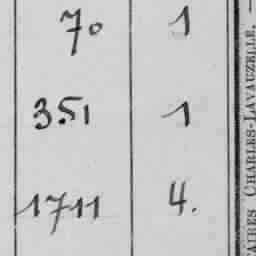 70 1
351 1
1711 4.
TAIRES CHARLES-LAVAUZELLE.